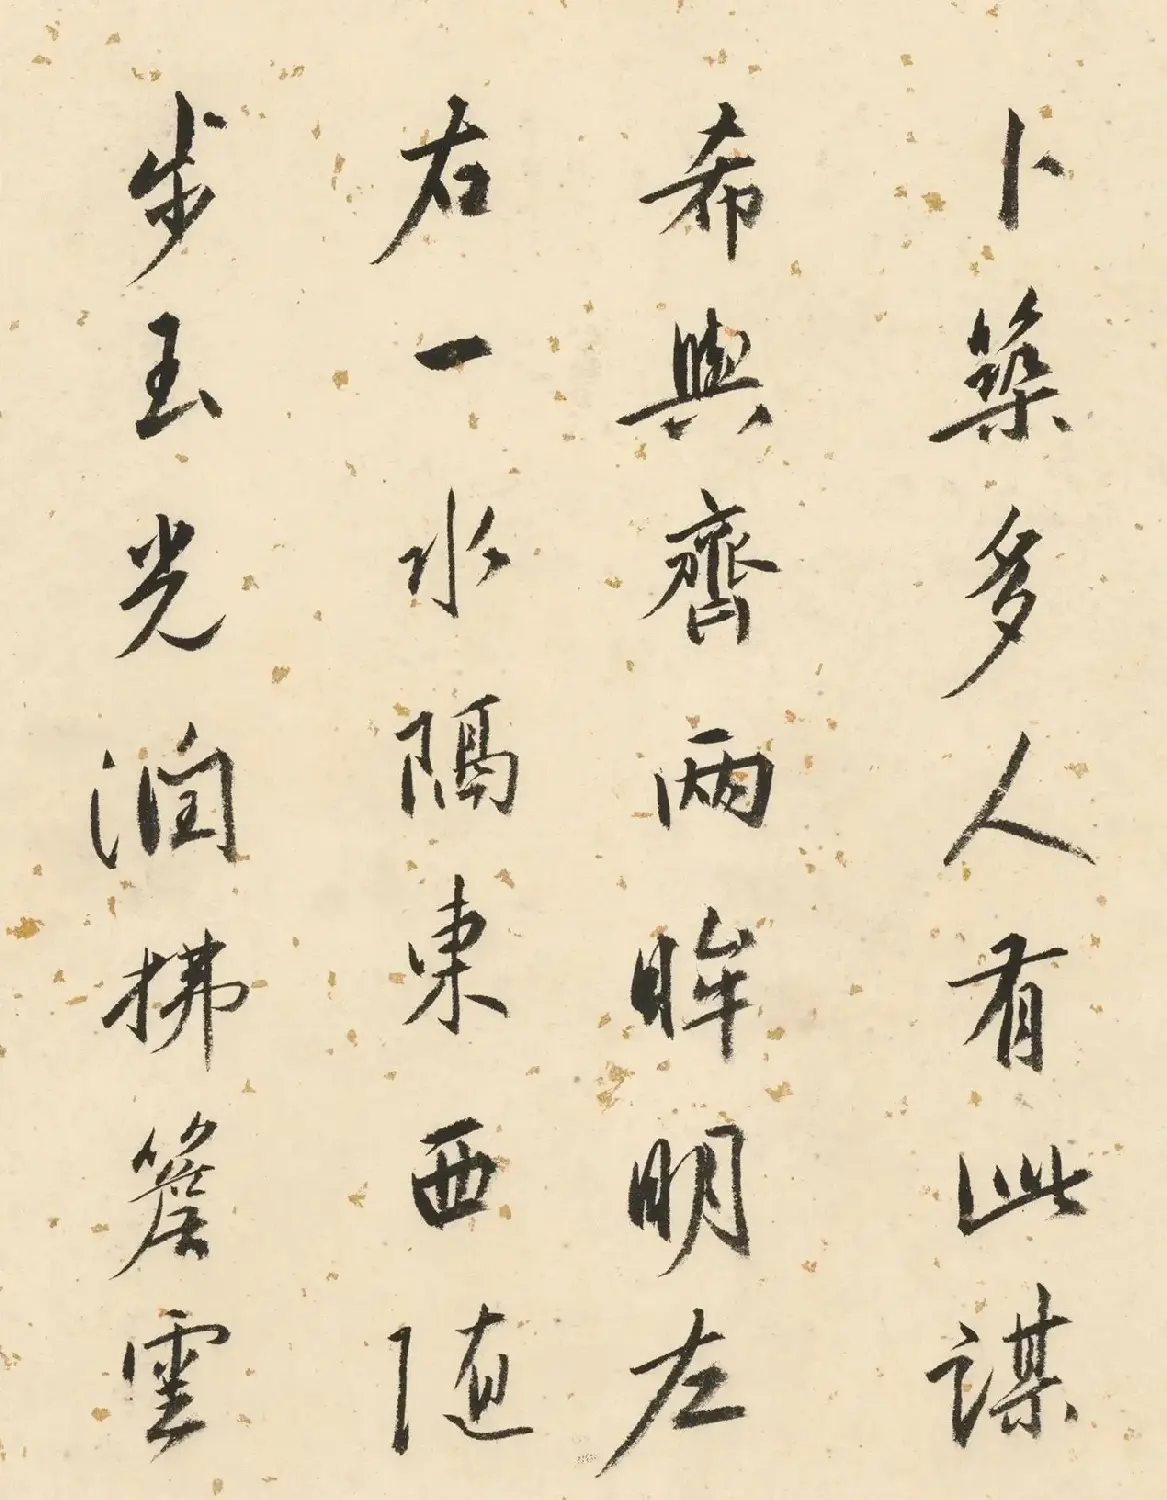 卜築多人有此謀
希與齊兩眸明左
右一水隔東西随
步玉光潤拂簷雲